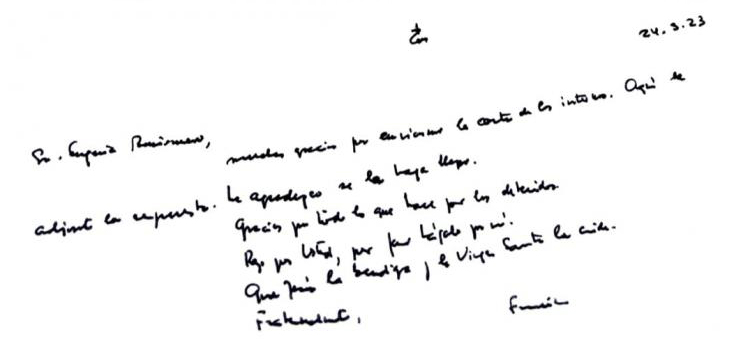 24.3.23
Sr. Eugenio
muchas gracias por enviarme la carta de los internos. Aquí le
adjunto la respuesta. Le agradezco se la haga llegar.
Gracias por todo lo que hace por los detenidos
Rezo por Usted, por favor hágalo por mí.
Que Jesús lo bendiga y la Virgen Santa lo cuide.
Fraternalmente,
Francisco